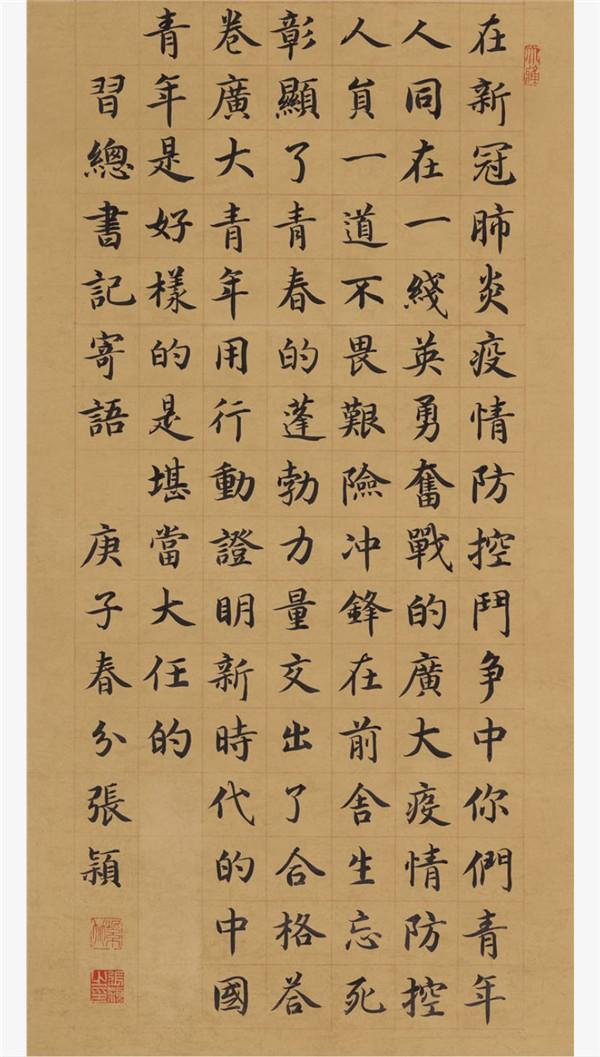 在新冠肺炎疫情防控鬥争中你們青年
人同在一綫英勇奮戰的廣大疫情防控
人員一道不畏艱險冲鋒在前舍生忘死
彰顯了青春的蓬勃力量交出了合格荅
卷廣大青年用行動證明新時代的中國
青年是好樣的是堪當大任的
習總書記寄語 庚子春分張穎